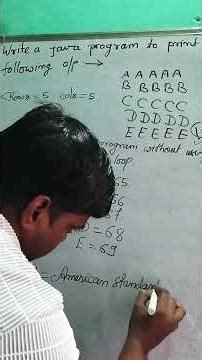 Write a java program to print
following o/p :→
Rows = 5 cols = 5
A A A A A
B B B B B
C C C C C
D D D D D
E E E E E
program without
loop
65
66
67
D = 68
E = 69
= American Standard